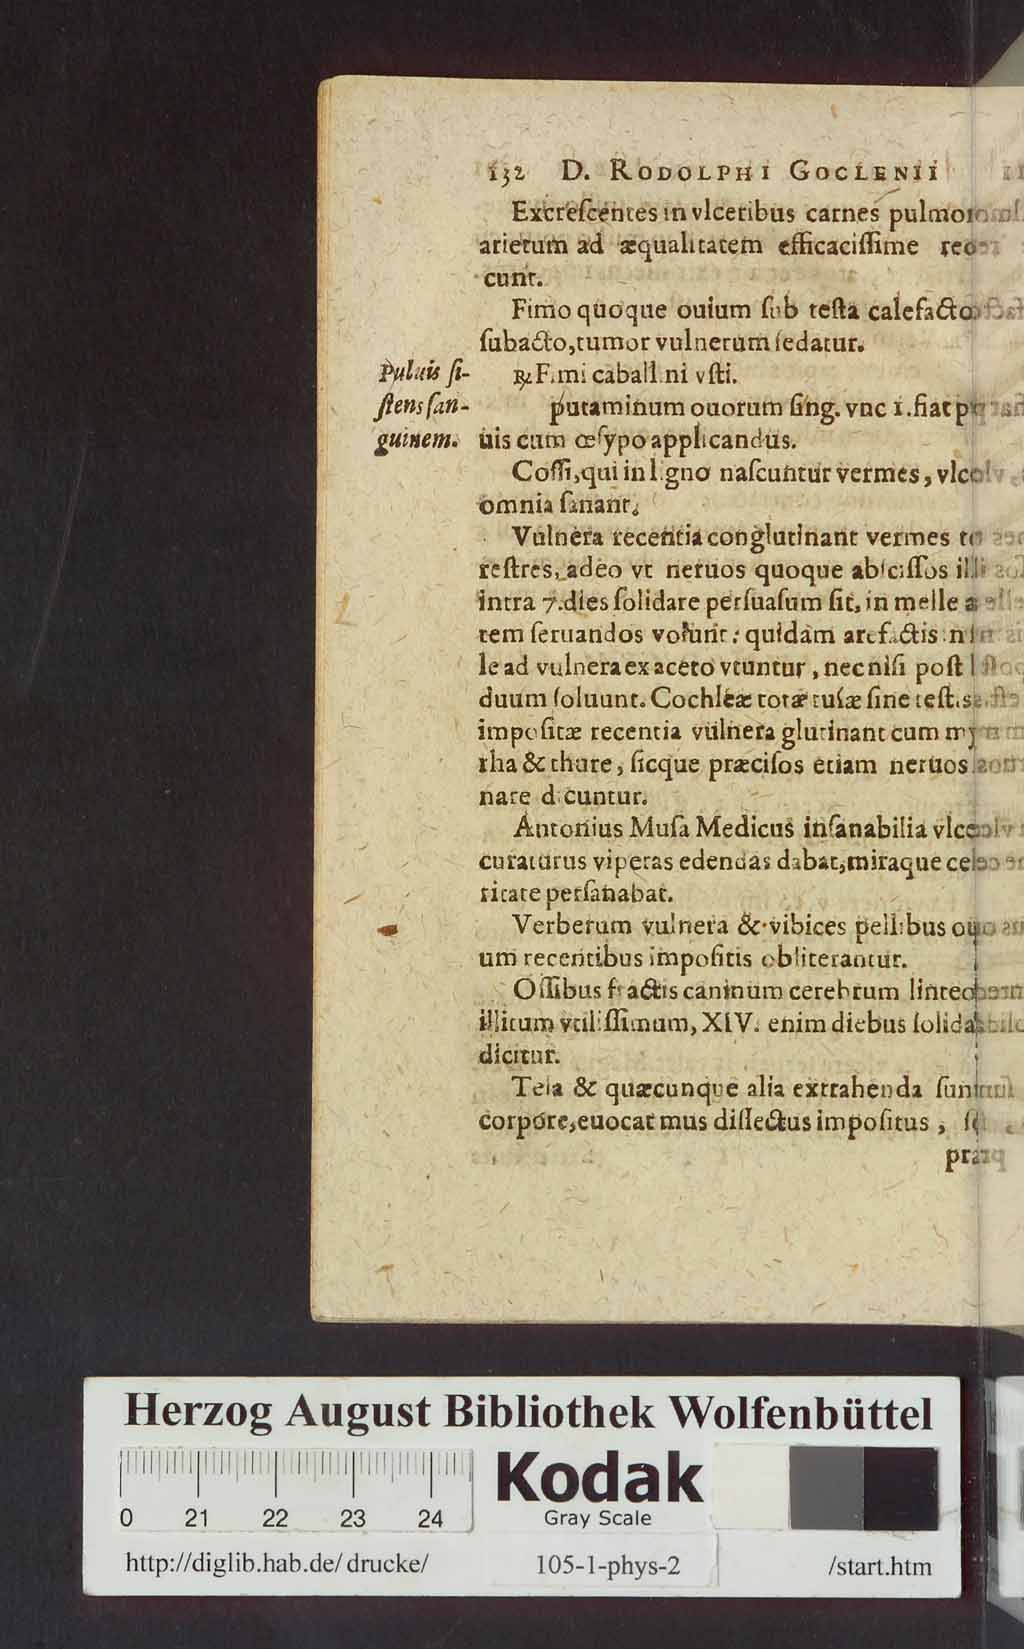 132 D. RODOLPHI GOCLENII
Excreſcentes in vlceribus carnes pulmo
arietum ad æqualitatem efficaciſſime re
cunt.
Fimo quoque ouium ſub teſta calefacto,
ſubacto, tumor vulnerum ſedatur.
Puluis ſi-
ſtens ſan-
guinem.
℞ Fimi caballini vſti.
putaminum ouorum ſing. vnc 1. fiat p
uis cum œſypo applicandus.
Coſſi, qui in ligno naſcuntur vermes, vlc
omnia ſanant.
Vulnera recentia conglutinant vermes te
reſtres, adeo vt neruos quoque abſciſſos il
intra 7. dies ſolidare perſuaſum ſit, in melle a
tem ſeruandos volunt: quidam arefactis in
le ad vulnera ex aceto vtuntur, nec niſi poſt
duum ſoluunt. Cochleæ totæ tuſæ ſine teſtis
impoſitæ recentia vulnera glutinant cum my
rha & thure, ſicque præciſos etiam neruos
nare dicuntur.
Antonius Muſa Medicus inſanabilia vlce
curaturus viperas edendas dabat, miraque cele
ritate perſanabat.
Verberum vulnera & vibices pellibus oui
um recentibus impoſitis obliterantur.
Oſſibus fractis caninum cerebrum linteo
illitum vtiliſſimum, XIV. enim diebus ſolida
dicitur.
Tela & quæcunque alia extrahenda ſunt
corpore, euocat mus diſſectus impoſitus, ſ
præ
Herzog August Bibliothek Wolfenbüttel
0 21 22 23 24
Kodak
Gray Scale
http://diglib.hab.de/drucke/ 105-1-phys-2 /start.htm